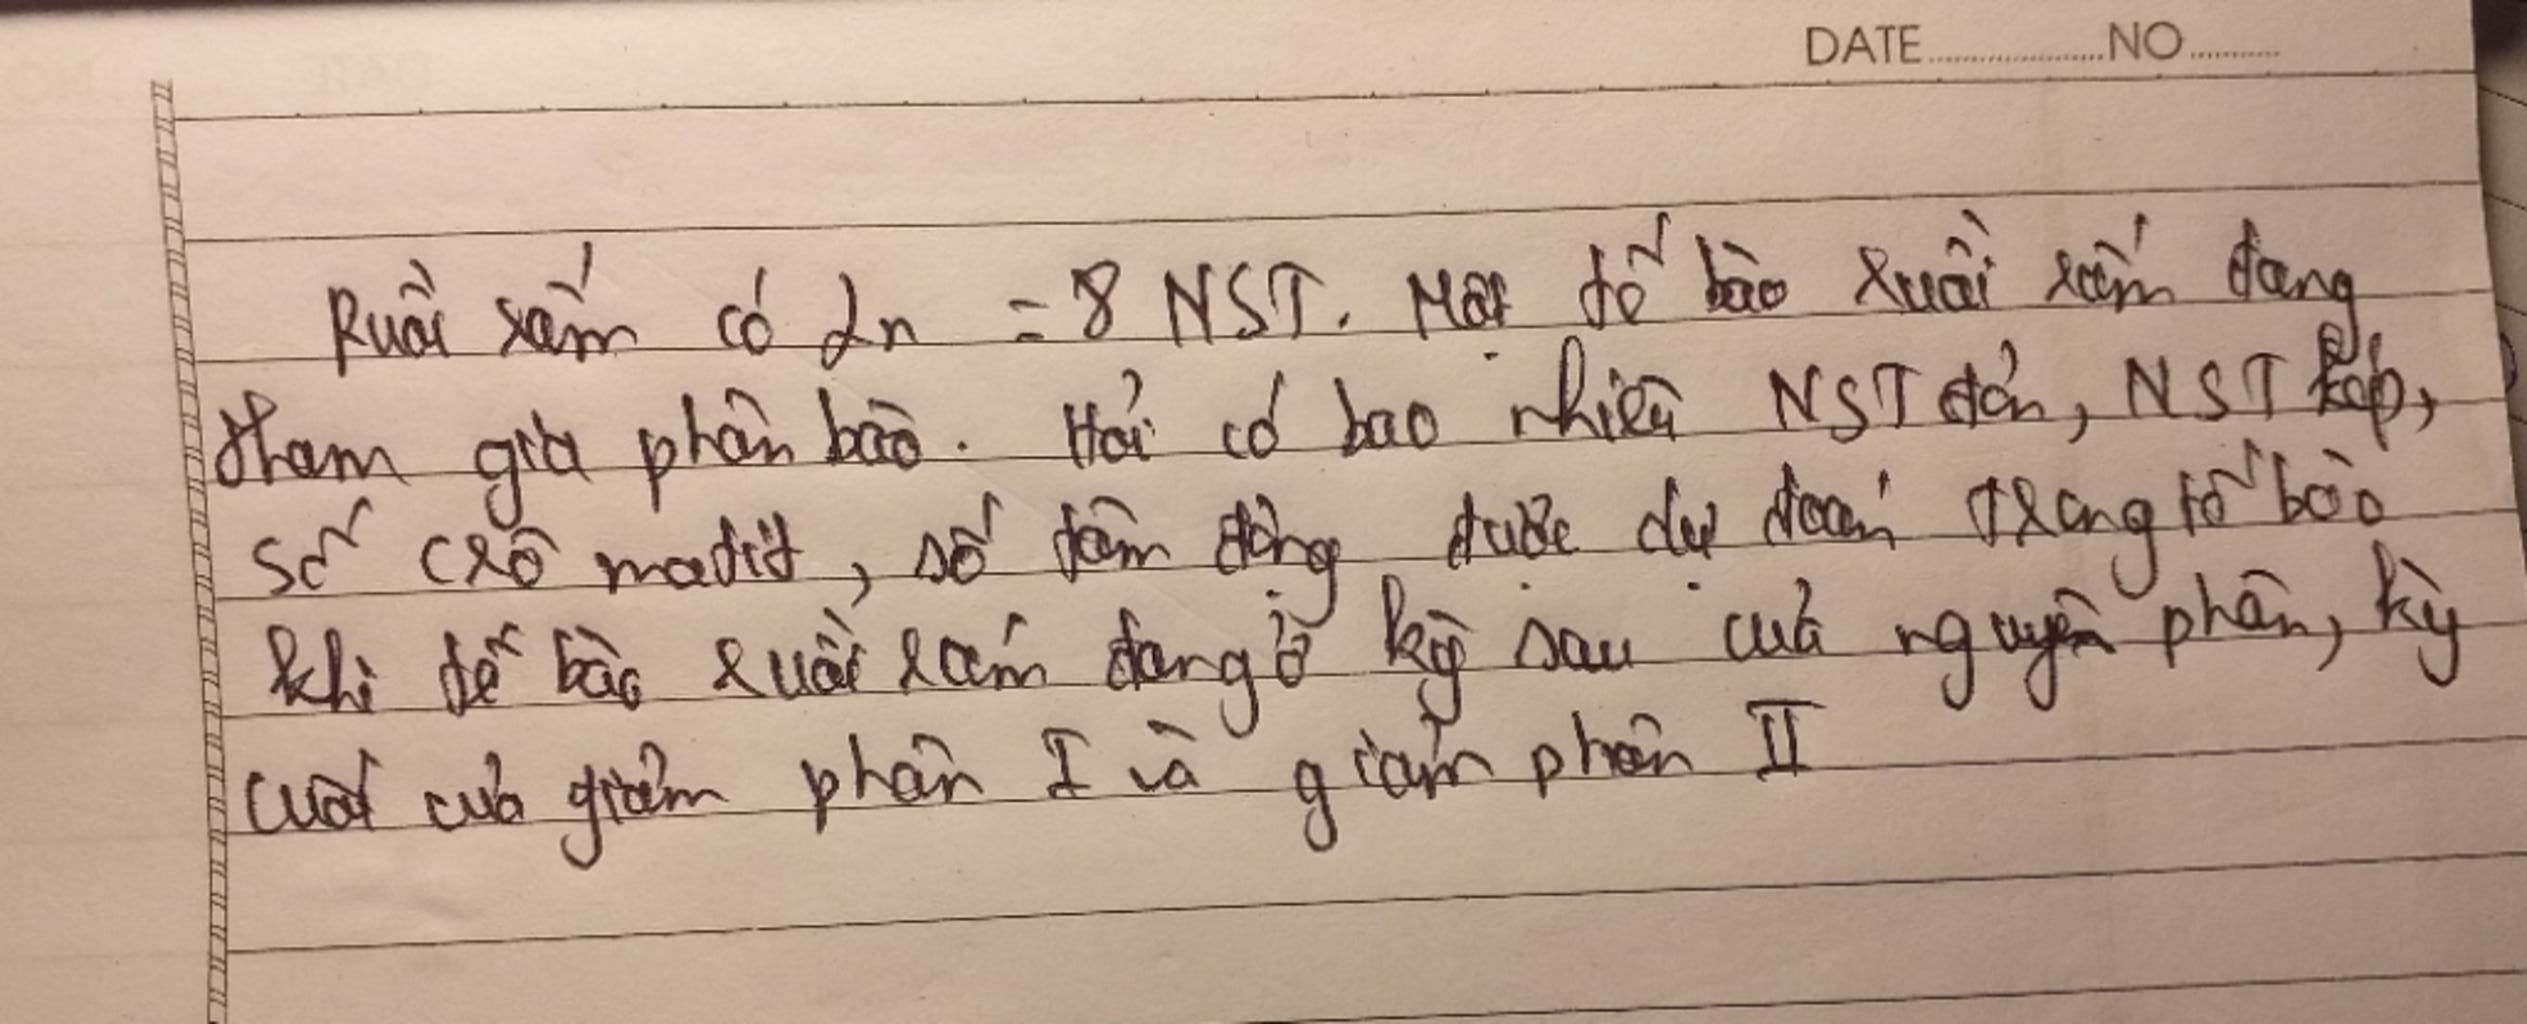 DATE..................NO..........
Ruồi xấm có 2n = 8 NST. Một tế bào ruồi xấm đang
tham gia phân bào. Hỏi có bao nhiêu NST đơn, NST kép,
số crô matit, số tâm động được dự đoán trong tế bào
khi tế bào ruồi xám đang ở kỳ sau của nguyên phân, kỳ
cuối của giảm phân I và giảm phân II